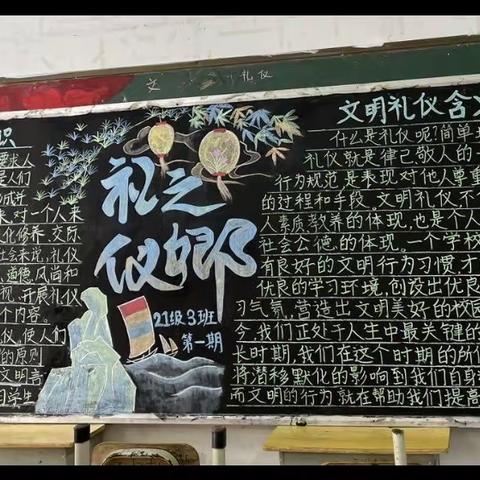 文 礼仪
识
要求人
是人们
成并
来,对一个人来
化修养、交际
社会来说,礼仪
道德风尚和
视、开展礼仪
个内容。
仪,使人们
的原则
文明言
学生
礼之
仪乡
21级3班
第一期
文明礼仪含义
什么是礼仪呢?简单
礼仪就是律己敬人的一
行为规范,是表现对他人尊重
的过程和手段。文明礼仪,不
人素质、教养的体现,也是个人
社会公德的体现。一个学校
有良好的文明行为习惯,才
优良的学习环境,创设出优良
习气氛,营造出文明美好的校园
今,我们正处于人生中最关键的
长时期,我们在这个时期的所
将潜移默化的影响到我们自身
而文明的行为就在帮助我们提高